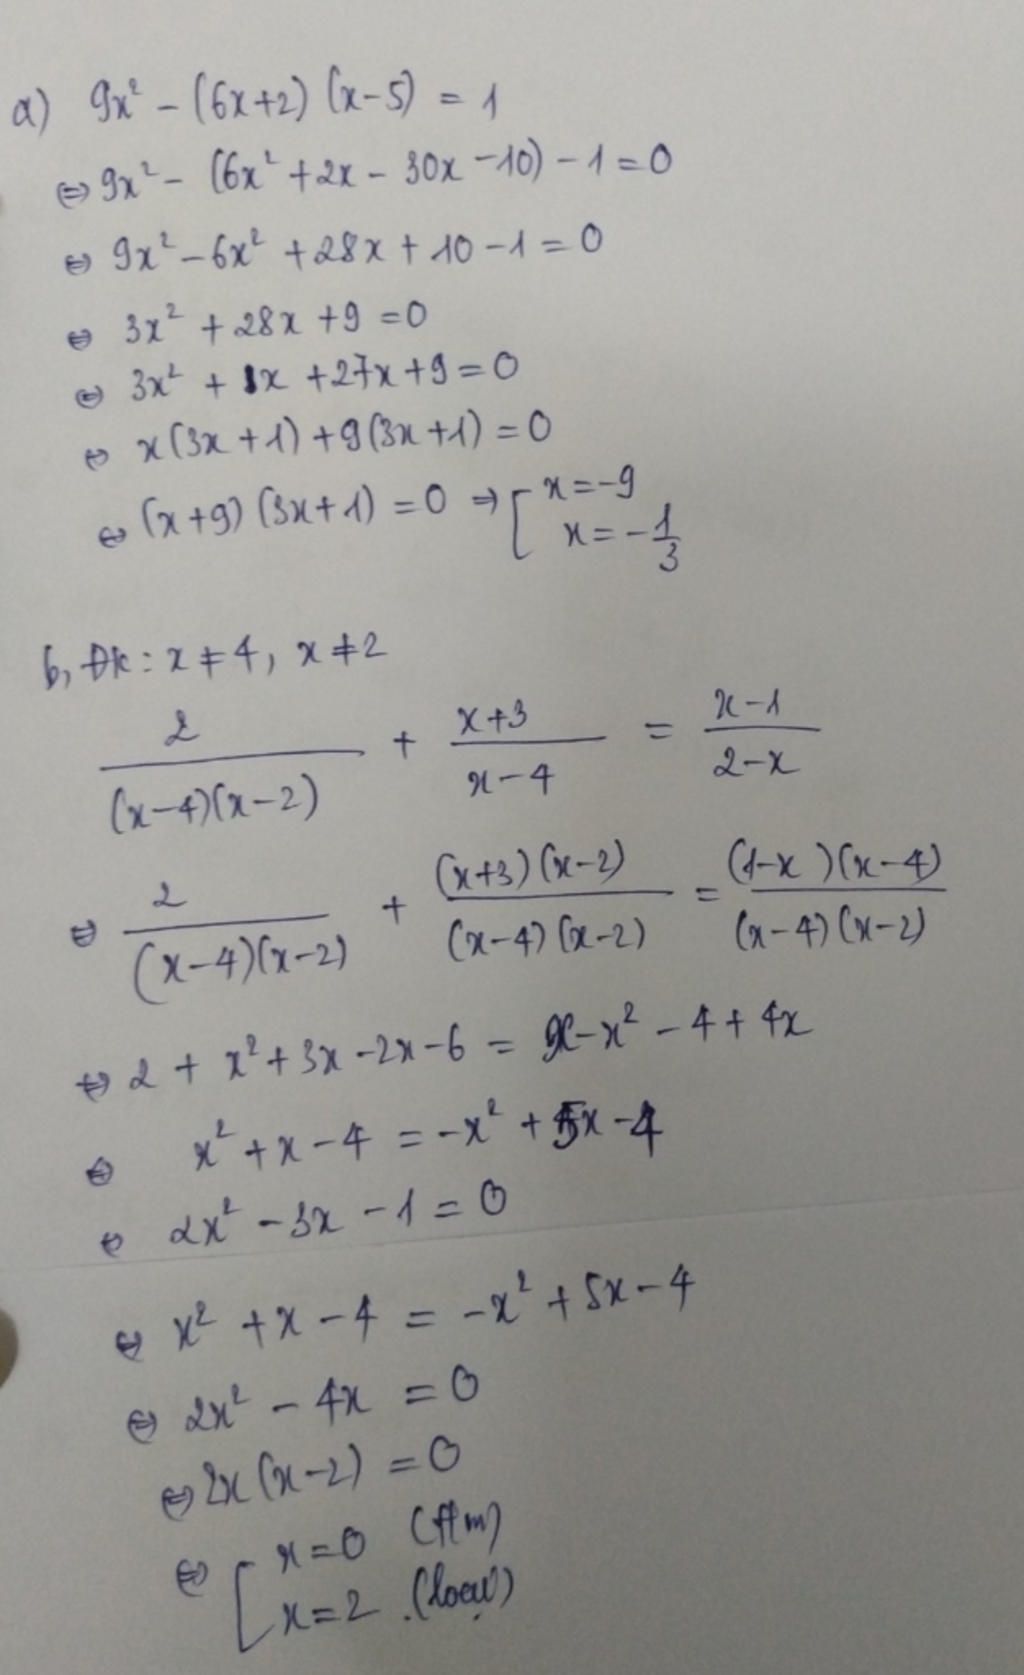 a) 9x² - (6x+2) (x-5) = 1
⇔ 9x² - (6x² + 2x - 30x - 10) - 1 = 0
⇔ 9x² - 6x² + 28x + 10 - 1 = 0
⇔ 3x² + 28x + 9 = 0
⇔ 3x² + 1x + 27x + 9 = 0
⇔ x(3x + 1) + 9(3x + 1) = 0
⇔ (x + 9) (3x + 1) = 0 ⇒ [ x = -9
x = -1/3
b, Đk : x ≠ 4, x ≠ 2
2/((x-4)(x-2)) + (x+3)/(x-4) = (x-1)/(2-x)
⇔ 2/((x-4)(x-2)) + ((x+3)(x-2))/((x-4)(x-2)) = ((1-x)(x-4))/((x-4)(x-2))
⇔ 2 + x² + 3x - 2x - 6 = x - x² - 4 + 4x
⇔ x² + x - 4 = -x² + 5x - 4
⇔ 2x² - 3x - 1 = 0
⇔ x² + x - 4 = -x² + 5x - 4
⇔ 2x² - 4x = 0
⇔ 2x (x - 2) = 0
⇔ [ x = 0 (t/m)
x = 2 (loại)